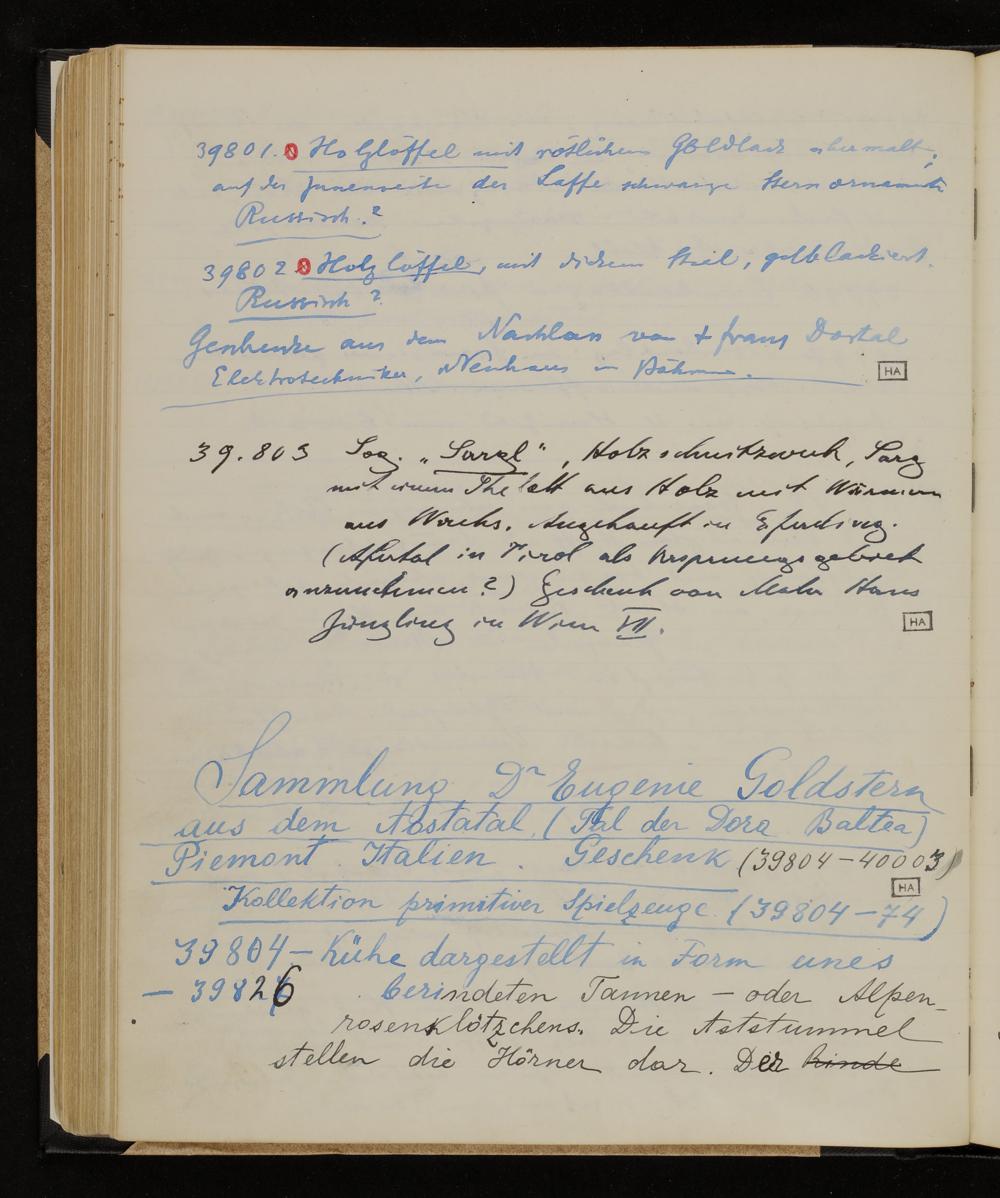 39801. 0 Holzlöffel mit rötlichem Goldlack übermalt,
auf der Innenseite der Laffe schwarze Sternornamente
Russisch.?
39802 0 Holzlöffel, mit dickem Stiel, gelblackiert.
Russisch?
Geschenke aus dem Nachlass von + Franz Dostal
Elektrotechniker, Neuhaus in Böhmen.
HA
39.803 Sog. „Sargl", Holzschnitzwerk, Sarg
mit einem Skelett aus Holz mit Würmern
aus Wachs. Angekauft in Eferding.
( in Tirol als Ursprungsgebiet
anzunehmen?) Geschenk von Maler Hans
Jüngling in Wien VII.
HA
Sammlung Dr Eugenie Goldstern
aus dem Aostatal (Tal der Dora Baltea)
Piemont Italien. Geschenk (39804-40003)
HA
Kollektion primitiver Spielzeuge (39804-74)
39804- Kühe dargestellt in Form eines
- 39826 berindeten Tannen- oder Alpen-
rosenklötzchens. Die Aststummel
stellen die Hörner dar. Der Rinde